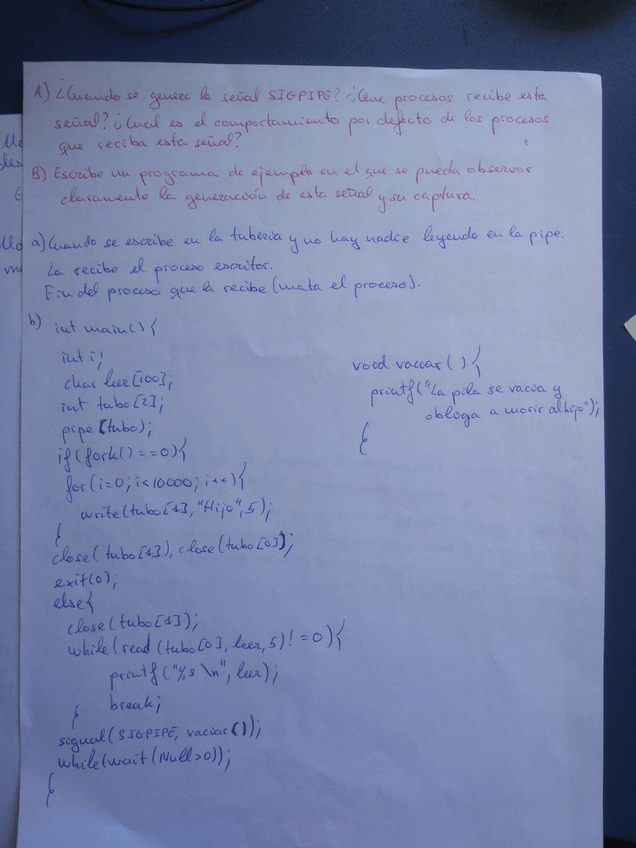 A) ¿Cuando se genera la señal SIGPIPE? ¿Que procesos recibe esta
señal? ¿Cual es el comportamiento por defecto de los procesos
que reciba esta señal?
B) Escribe un programa de ejemplo en el que se pueda observar
claramente la generación de esta señal y su captura.
a) Cuando se escribe en la tuberia y no hay nadie leyendo en la pipe.
La recibe el proceso escritor.
Fin del proceso que la recibe (mata el proceso).
b) int main() {
int i;
char leer[100];
int tubo[2];
pipe(tubo);
if(fork()==0){
for(i=0; i<10000; i++){
write(tubo[1],"Hijo",5);
}
close(tubo[1]), close(tubo[0]);
exit(0);
else{
close(tubo[1]);
while(read(tubo[0], leer,5)!=0){
printf("%s \n", leer);
break;
}
signal(SIGPIPE, vaciar());
while(wait(Null>0));
}
void vaciar() {
printf("La pila se vacia y
obliga a morir al hijo");
}